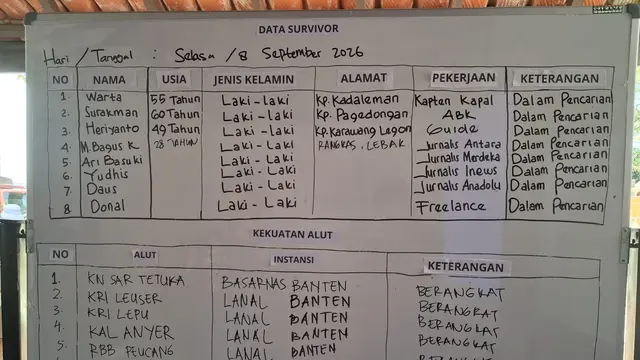 DATA SURVIVOR
Hari / Tanggal : Selasa / 8 September 2026
NO NAMA USIA JENIS KELAMIN ALAMAT PEKERJAAN KETERANGAN
1. Warta 55 Tahun Laki-laki Kp. Kadaleman Kapten Kapal Dalam Pencarian
2. Surakman 60 Tahun Laki-laki Kp. Pagedongan ABK Dalam Pencarian
3. Heriyanto 49 Tahun Laki-laki Kp. Karawang Legon Guide Dalam Pencarian
4. M. Bagus K 28 TAHUN Laki-laki RANGKAS, LEBAK Jurnalis Antara Dalam Pencarian
5. Ari Basuki Laki-laki Jurnalis Merdeka Dalam Pencarian
6. Yudhis Laki-laki Jurnalis Inews Dalam Pencarian
7. Daus Laki-Laki Jurnalis Anadolu Dalam Pencarian
8 Donal Laki-Laki Freelance Dalam Pencarian
KEKUATAN ALUT
NO ALUT INSTANSI KETERANGAN
1. KN SAR TETUKA BASARNAS BANTEN BERANGKAT
2. KRI LEUSER LANAL BANTEN BERANGKAT
3. KRI LEPU LANAL BANTEN BERANGKAT
4. KAL ANYER LANAL BANTEN BERANGKAT
5. RBB PEUCANG LANAL BANTEN